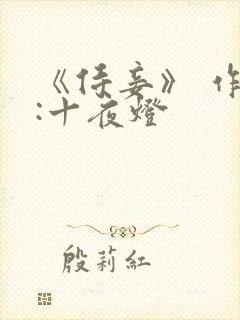 《侍妾》 作
:十夜燈
殷莉紅